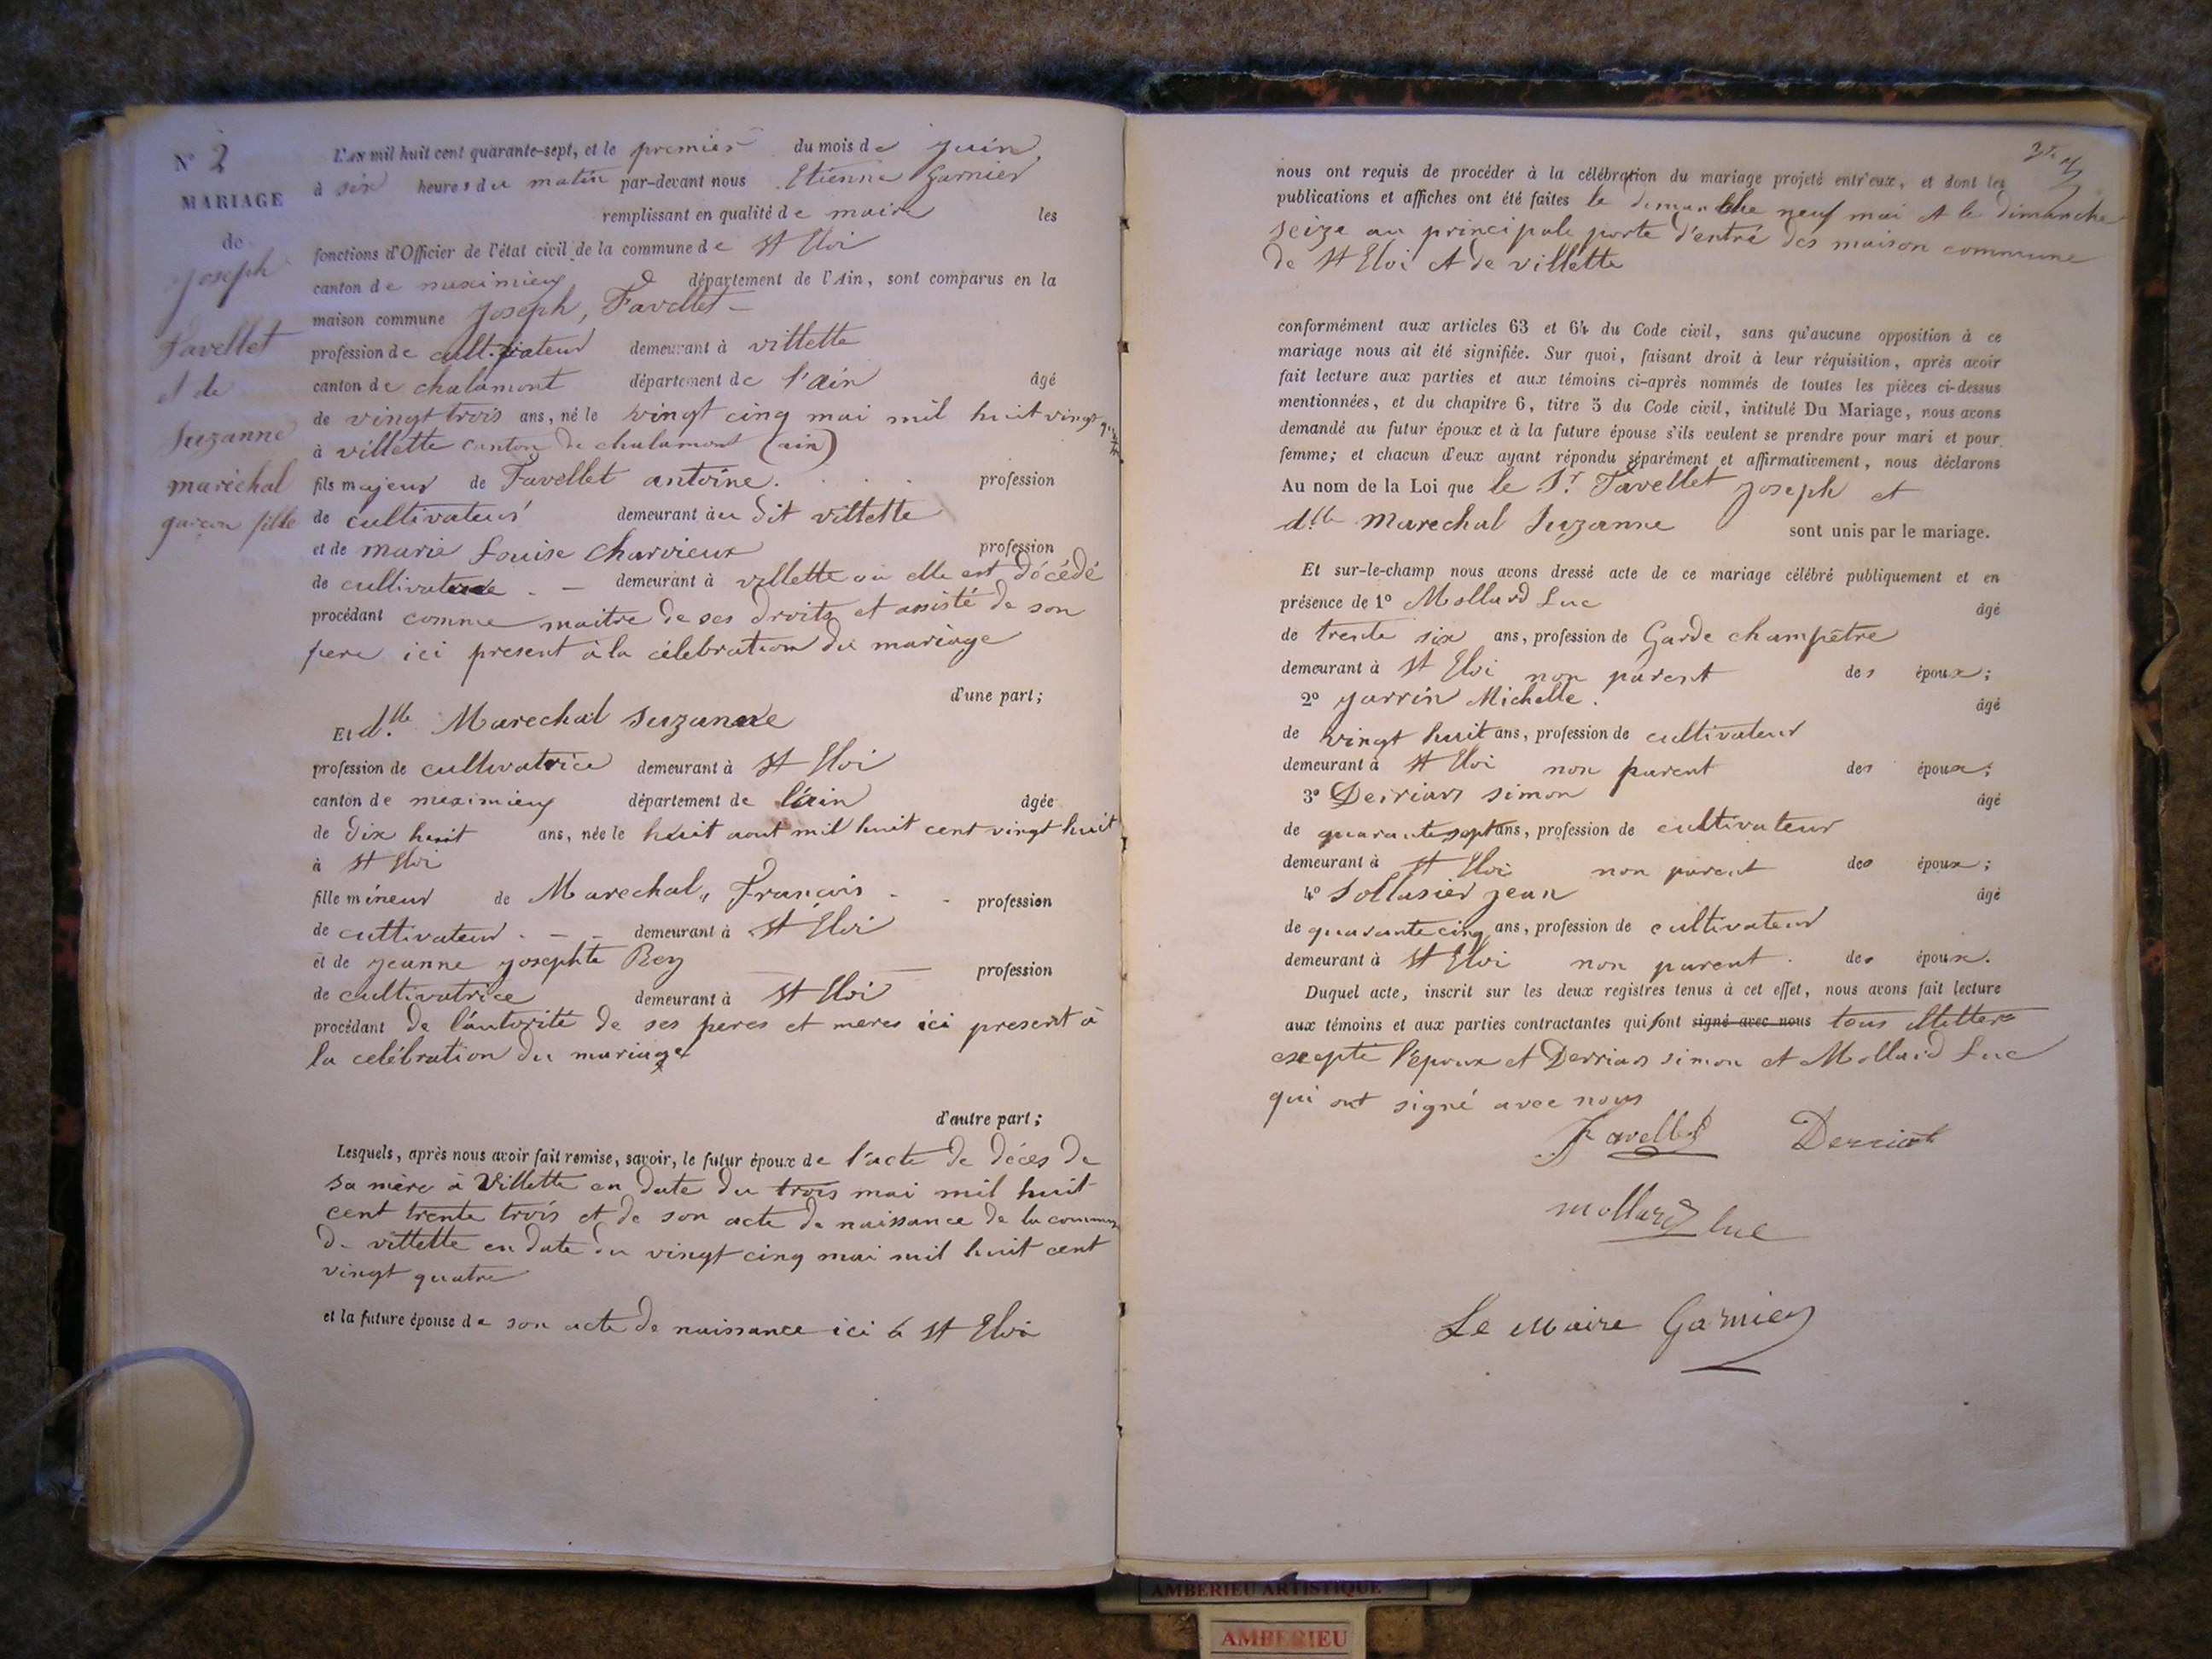 N° 2
MARIAGE
de
Joseph
Favellet
et de
Suzanne
maréchal
garçon fille
L'an mil huit cent quarante-sept, et le premier du mois de juin
à six heures du matin par-devant nous Etienne Garnier
remplissant en qualité de maire les
fonctions d'Officier de l'état civil de la commune de St Eloi
canton de meximieux département de l'Ain, sont comparus en la
maison commune Joseph, Favellet
profession de cultivateur demeurant à villette
canton de chalamont département de l'ain âgé
de vingt trois ans, né le vingt cinq mai mil huit vingt
à villette canton de chalamont (ain)
fils majeur de Favellet antoine. profession
de cultivateur demeurant au dit villette
et de marie Louise Charvieux profession
de demeurant à villette où elle est décédé
procédant comme maitre de ses droits et assisté de son
pere ici present à la célebration du mariage
d'une part;
Et dlle Marechal suzanne
profession de cultivatrice demeurant à St Eloi
canton de meximieux département de l'ain âgée
de dix huit ans, née le huit aout mil huit cent vingt huit
à St Eloi
fille mineur de Marechal, François profession
de cultivateur demeurant à St Eloi
et de jeanne josephte Rey profession
de cultivatrice demeurant à St Eloi
procédant de l'autorité de ses peres et meres ici present à
la celébration du mariage
d'autre part;
Lesquels, après nous avoir fait remise, savoir, le futur époux de l'acte de décès de
sa mère à Villette en date du trois mai mil huit
cent trente trois et de son acte de naissance de la commune
de villette en date du vingt cinq mai mil huit cent
vingt quatre
et la future épouse de son acte de naissance ici à St Eloi
nous ont requis de procéder à la célébration du mariage projeté entr'eux, et dont les
publications et affiches ont été faites le dimanche neuf mai et le dimanche
seize au principale porte d'entré des maison commune
de St Eloi et de villette
conformément aux articles 63 et 64 du Code civil, sans qu'aucune opposition à ce
mariage nous ait été signifiée. Sur quoi, faisant droit à leur réquisition, après avoir
fait lecture aux parties et aux témoins ci-après nommés de toutes les pièces ci-dessus
mentionnées, et du chapitre 6, titre 5 du Code civil, intitulé Du Mariage, nous avons
demandé au futur époux et à la future épouse s'ils veulent se prendre pour mari et pour
femme; et chacun d'eux ayant répondu séparément et affirmativement, nous déclarons
Au nom de la Loi que le Sr Favellet Joseph et
dlle Marechal Suzanne sont unis par le mariage.
Et sur-le-champ nous avons dressé acte de ce mariage célébré publiquement et en
présence de 1° Mollard Luc âgé
de trente six ans, profession de Garde champêtre
demeurant à St Eloi non parent des époux;
2° Michelle. âgé
de vingt huit ans, profession de cultivateur
demeurant à St Eloi non parent des époux;
3° simon âgé
de quarante sept ans, profession de cultivateur
demeurant à St Eloi non parent des époux;
4° jean âgé
de quarante cinq ans, profession de cultivateur
demeurant à St Eloi non parent des époux.
Duquel acte, inscrit sur les deux registres tenus à cet effet, nous avons fait lecture
aux témoins et aux parties contractantes qui sont signé avec nous tous
excepté l'époux et simon et Mollard Luc
qui ont signé avec nous
Favellet
mollard luc
Le Maire Garnier
AMBERIEU ARTISTIQUE
AMBERIEU